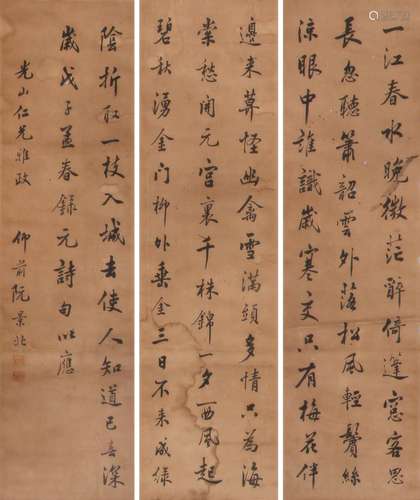 一江春水晚微茫醉倚篷窓客思
長忽聽簫韶雲外落松風輕鬢絲
涼眼中誰識歲寒交只有梅花伴
邊来莫怪幽禽雪滿頭多情只為海
棠愁開元宮裏千株錦一夕西風起
碧秋湧金门柳外垂金三日不来成绿
陰折取一枝入城去使人知道已春深
歲戊子孟春錄元詩句以應
光山仁兄雅政 仰前阮景北